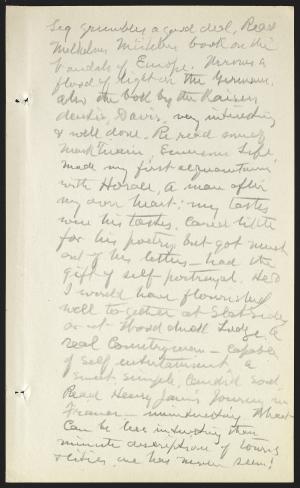 leg grumbles a good deal. Read
book on the
Vandals of Europe. Throws a
flood of light on the Germans.
Also the book by the Kaisers
dentist, Davis. very interesting
& well done. Re read some of
Mark Twain, Emersons Life,
made my first acquaintance
with Horace, a man after
my own heart: my tastes
were his tastes. Cared little
for his poetry but got much
out of his letters – had the
gift of self portrayal. He &
I would have flourished
well together at Slabsides
or at Woodchuck Lodge. A
real Countryman – capable
of self entertainment, a
sweet, simple, candid soul.
Read Henry James Journey in
France – uninteresting. What
can be less interesting than
minute descriptions of towns
& cities one has never seen!